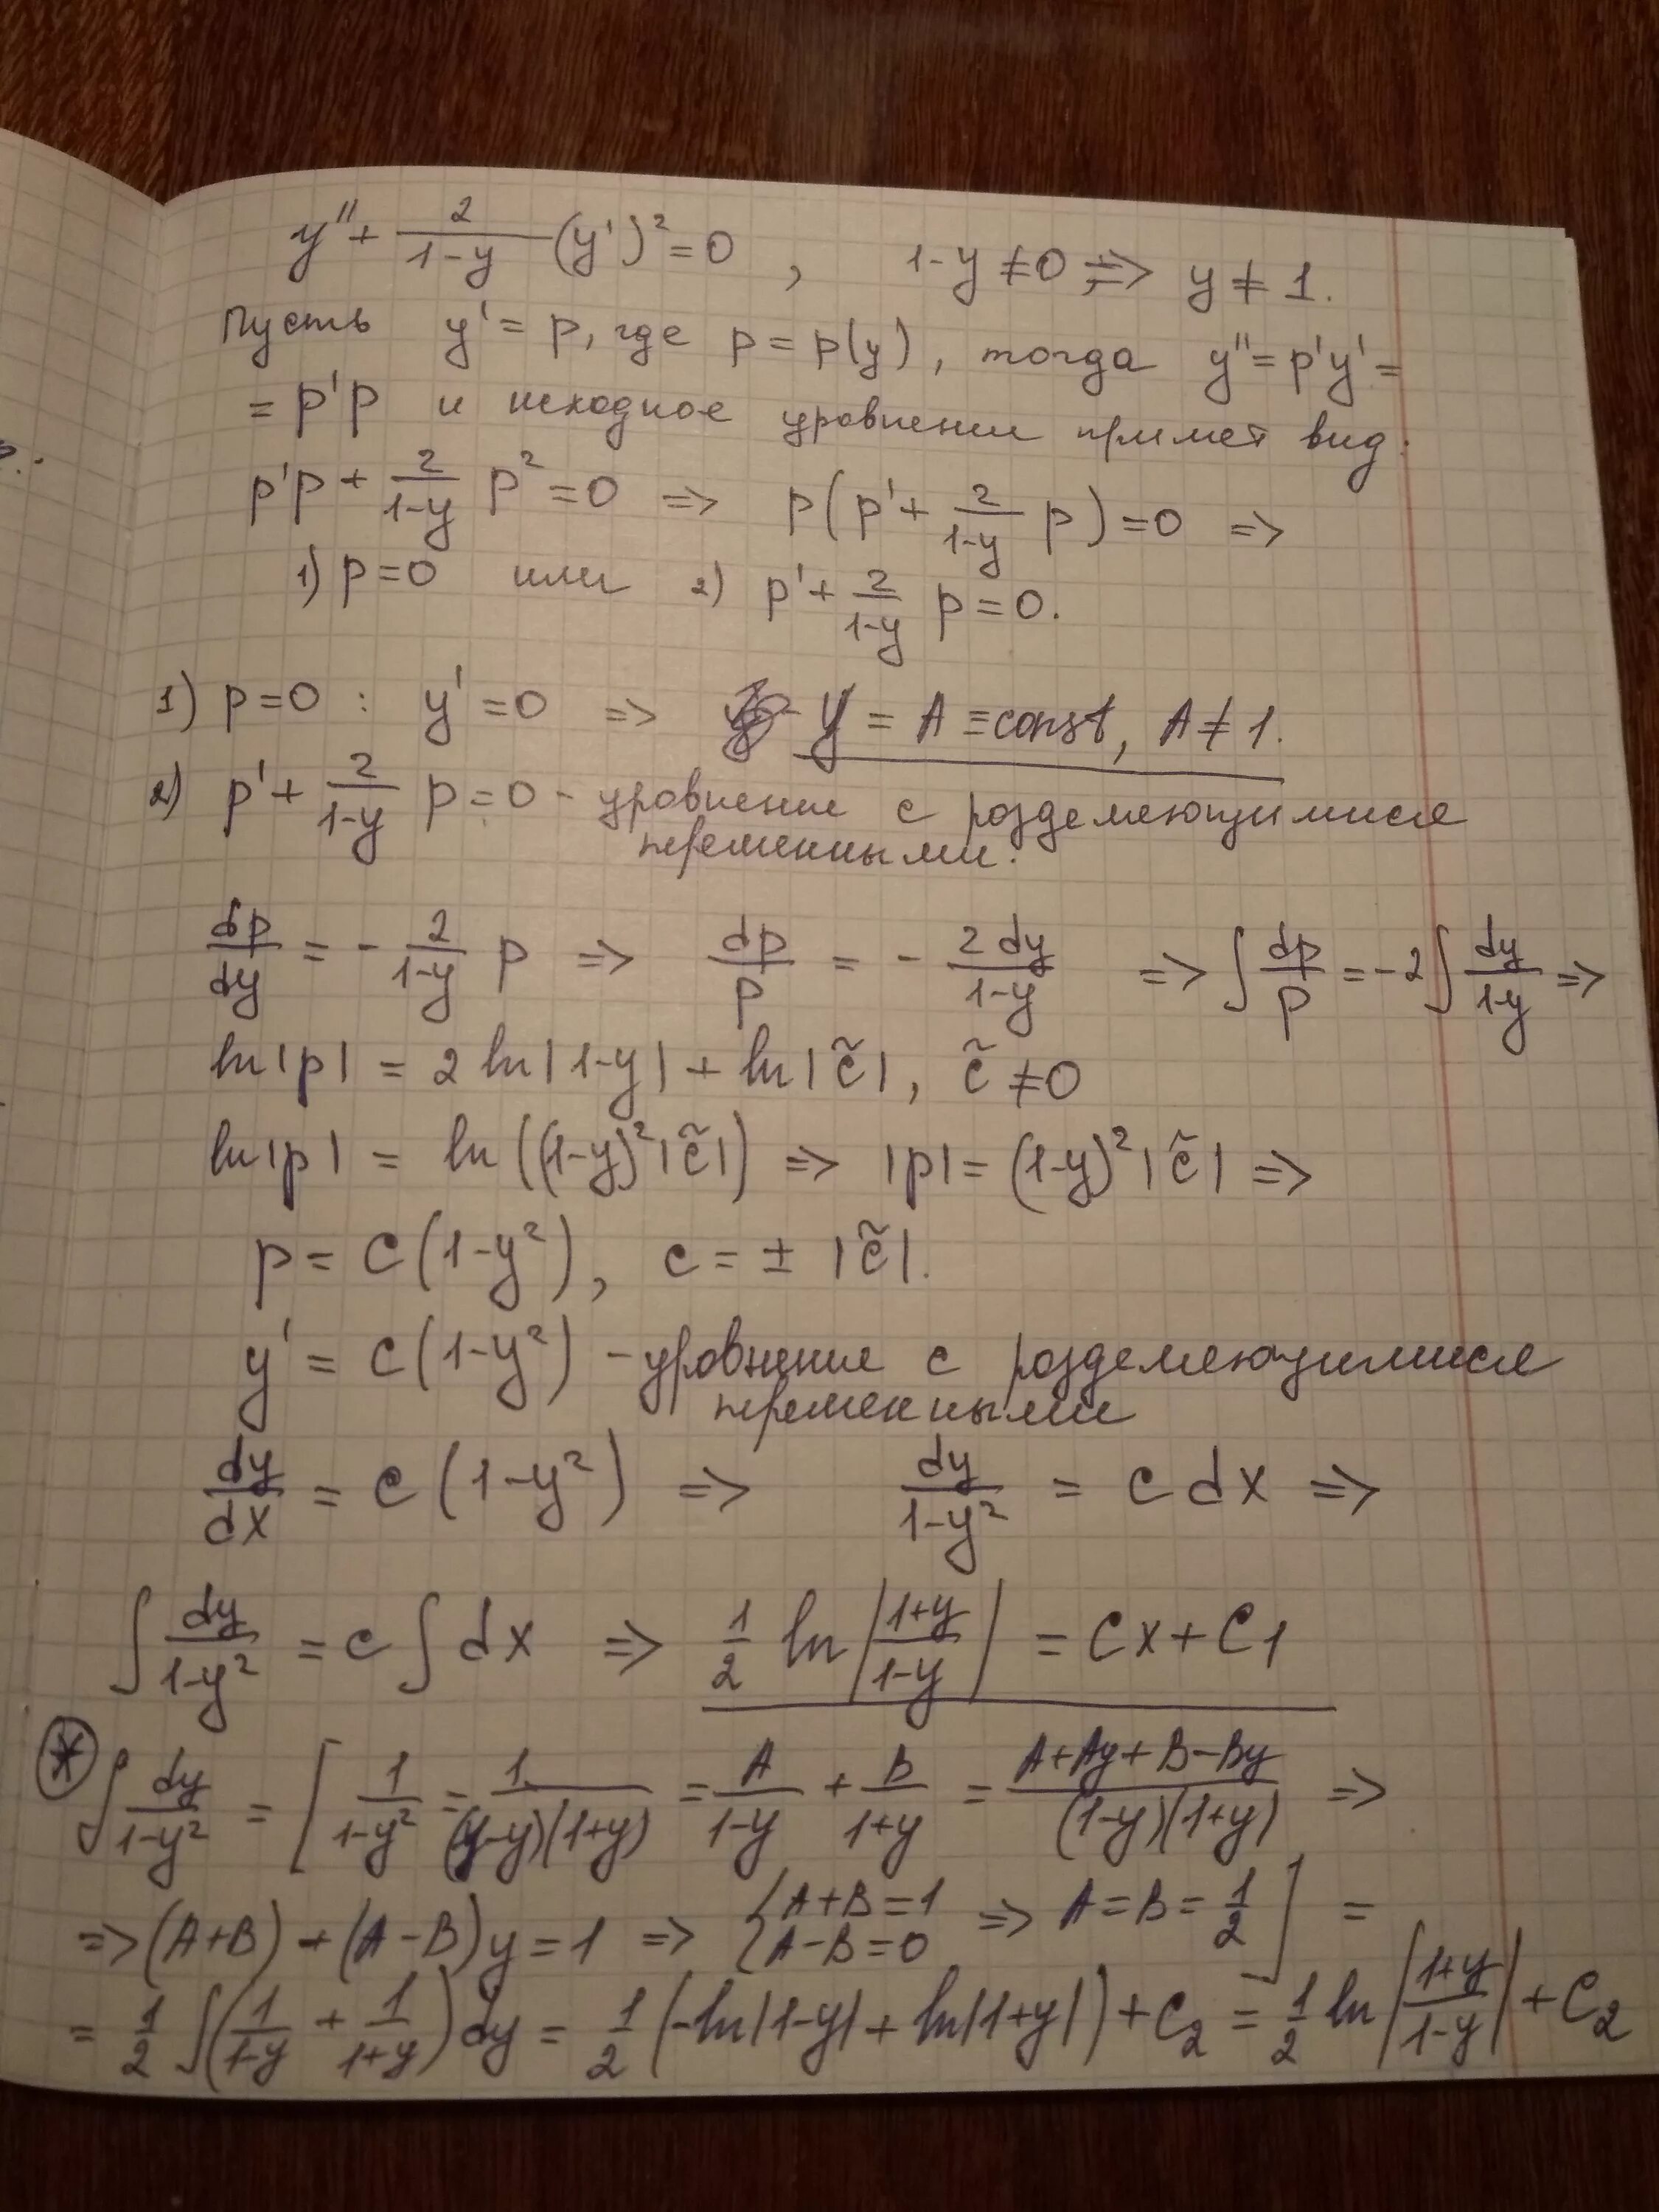 y'' + 2/(1-y) (y')² = 0 , 1-y ≠ 0 => y ≠ 1.
Пусть y' = p, где p = p(y), тогда y'' = p'y' =
= p'p и исходное уравнение примет вид:
p'p + 2/(1-y) p² = 0 => p(p' + 2/(1-y) p) = 0 =>
1) p = 0 или 2) p' + 2/(1-y) p = 0.
1) p = 0 : y' = 0 => y = A ≡ const, A ≠ 1.
2) p' + 2/(1-y) p = 0 - уравнение с разделяющимися
переменными.
dp/dy = - 2/(1-y) p => dp/p = - 2 dy/(1-y) => ∫ dp/p = -2 ∫ dy/(1-y) =>
ln|p| = 2 ln|1-y| + ln|c̃|, c̃ ≠ 0
ln|p| = ln((1-y)²|c̃|) => |p| = (1-y)²|c̃| =>
p = c(1-y²), c = ± |c̃|.
y' = c(1-y²) - уравнение с разделяющимися
переменными
dy/dx = c(1-y²) => dy/(1-y²) = c dx =>
∫ dy/(1-y²) = c ∫ dx => 1/2 ln|(1+y)/(1-y)| = Cx + C1
* ∫ dy/(1-y²) = [ 1/(1-y²) = 1/((1-y)(1+y)) = A/(1-y) + B/(1+y) = (A+Ay+B-By)/((1-y)(1+y)) =>
=> (A+B) + (A-B)y = 1 => { A+B=1 A-B=0 => A = B = 1/2 ] =
= 1/2 ∫(1/(1-y) + 1/(1+y)) dy = 1/2 (-ln|1-y| + ln|1+y|) + C₂ = 1/2 ln|(1+y)/(1-y)| + C₂